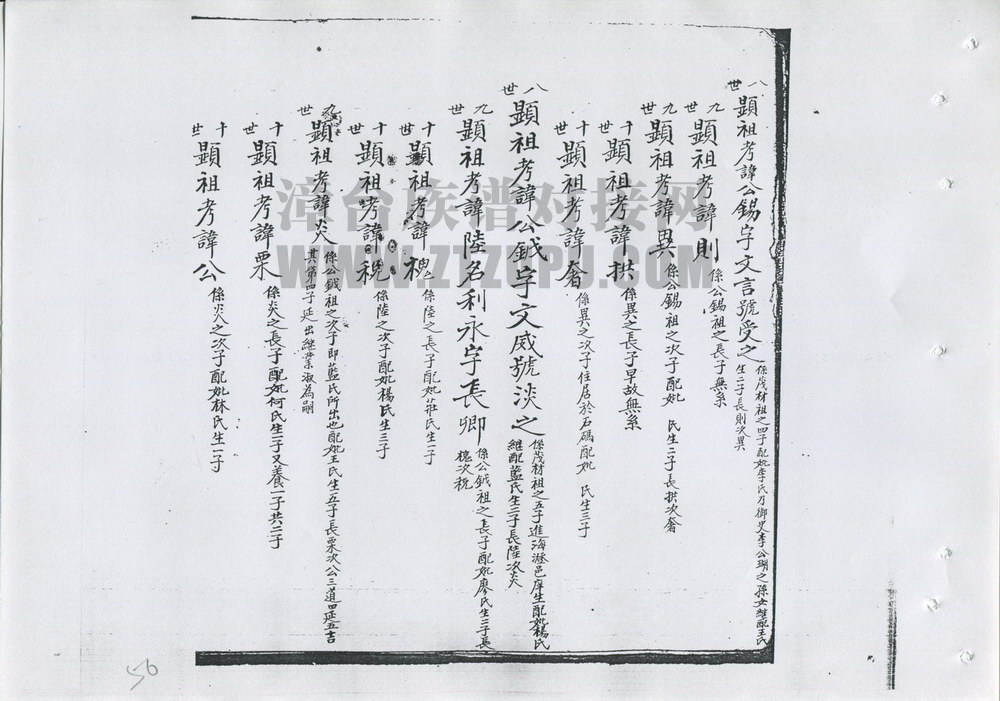 八世 顯祖考諱公錫字文言號受之 係茂材祖之四子配妣李氏乃御史李公瑚之孫女継配王氏
生二子長則次異
九世 顯祖考諱則 係公錫祖之長子無系
九世 顯祖考諱異 係公錫祖之次子配妣 民生二子長拱次奢
十世 顯祖考諱拱 係異之長子早故無系
十世 顯祖考諱奢 係異之次子住居於石碼配妣 氏生三子
八世 顯祖考諱公鉞字文威號淡之 係茂材祖之五子進海澄邑庠生配妣楊氏
継配藍氏生二子長陸次炎
九世 顯祖考諱陸名利永字長卿 係公鉞祖之長子配妣廖氏生二子長
次税
十世 顯祖考諱 係陸之長子配妣莊氏生一子
十世 顯祖考諱税 係陸之次子配妣楊氏生三子
九世 顯祖考諱炎 係公鉞祖之次子即藍氏所出也配妣王氏生五子長栗次公三道四延五吉
其第四子延出継業淑為嗣
十世 顯祖考諱栗 係炎之長子配妣何氏生一子又養一子共二子
十世 顯祖考諱公 係炎之次子配妣林氏生一子
漳台族谱对接网
WWW.ZTZUPU.COM
56